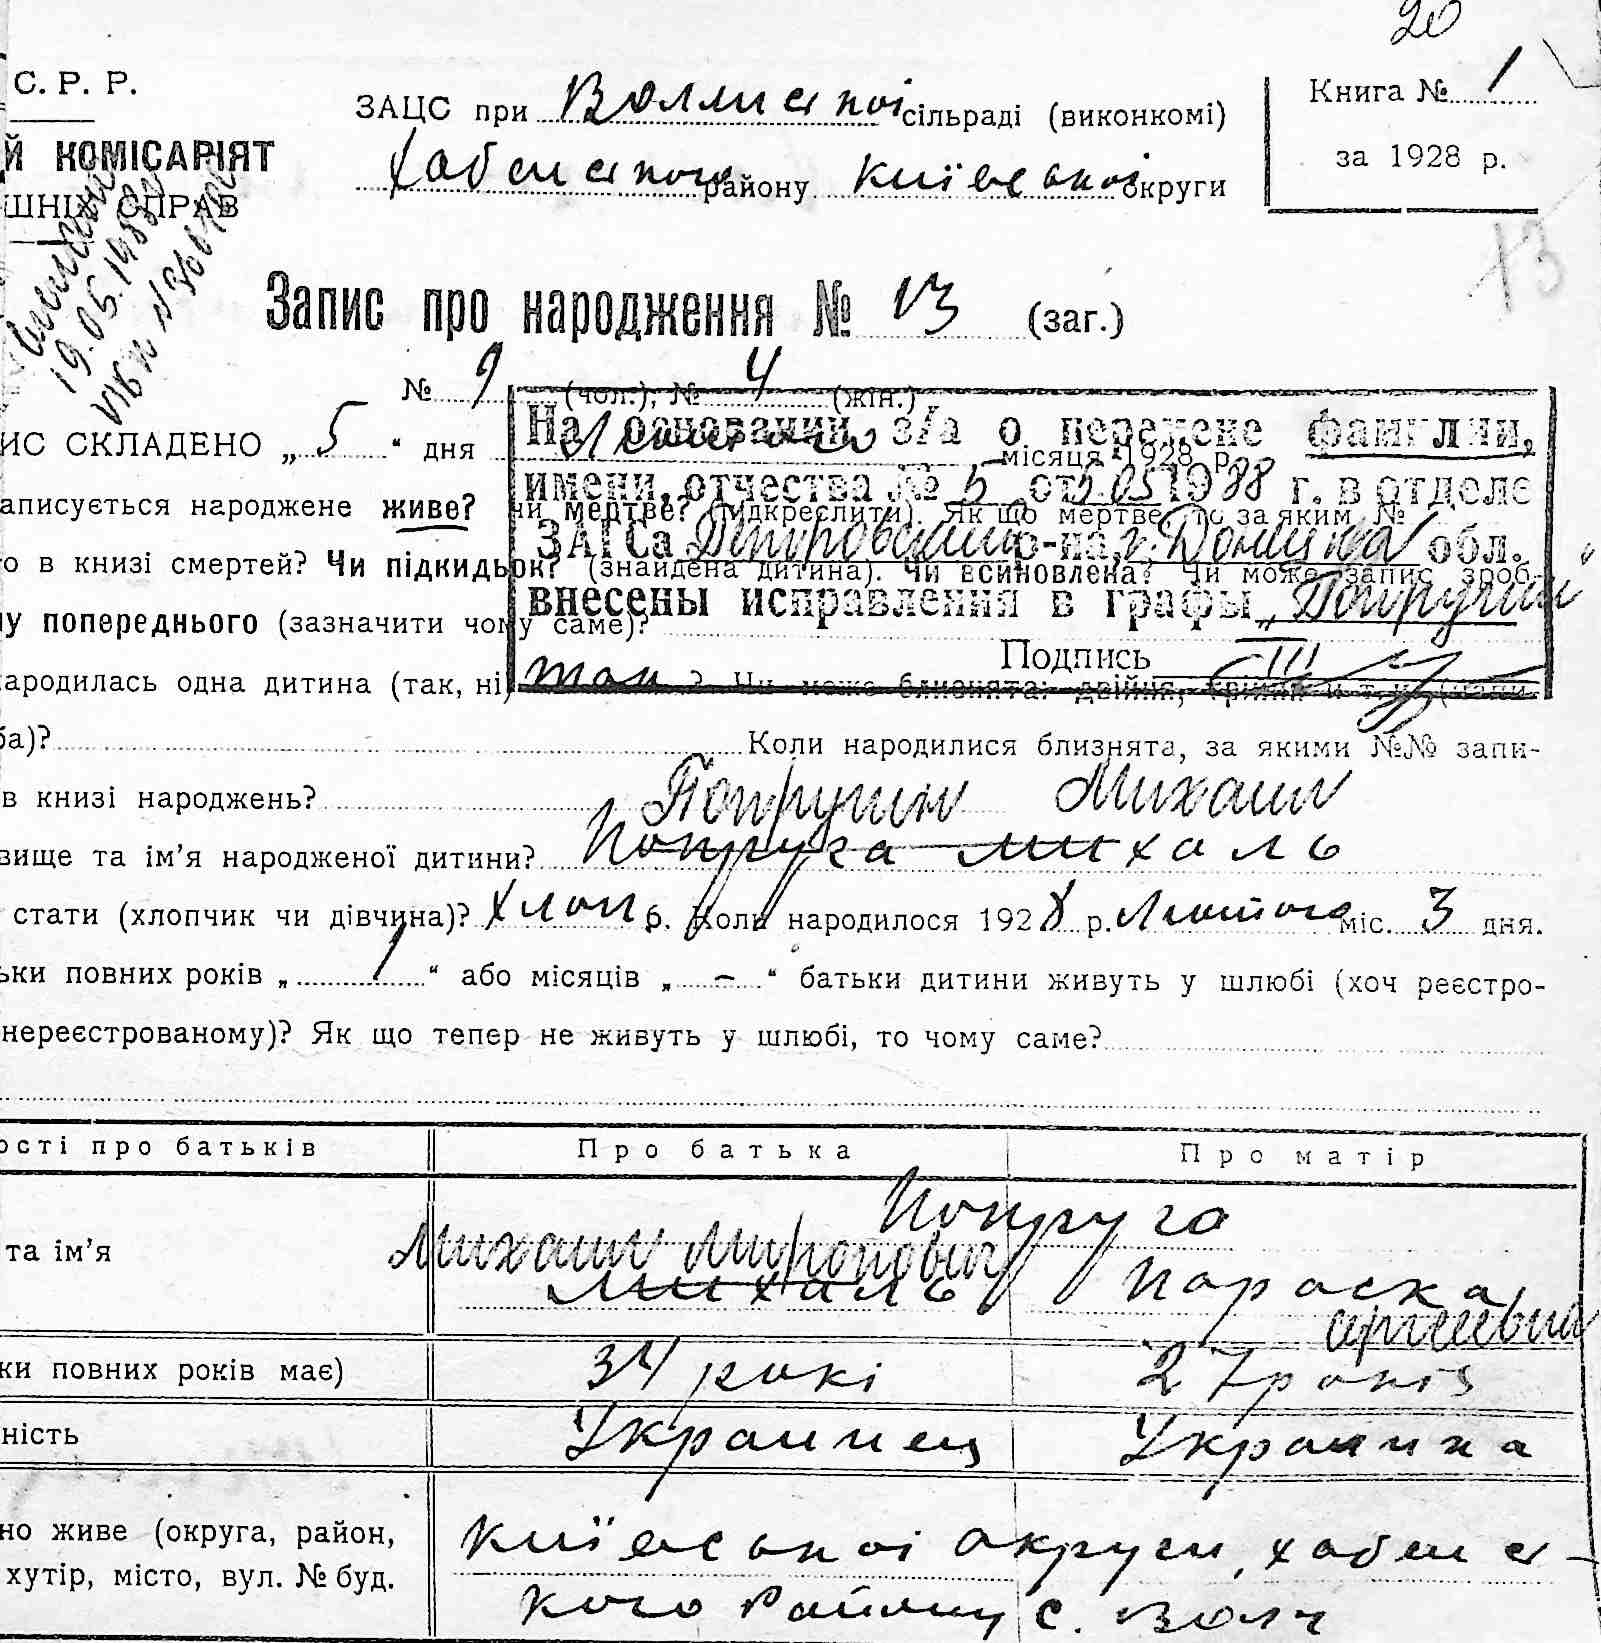 20
С. Р. Р.
ЗАЦС при сільраді (виконкомі)
Книга № 1
Й КОМІСАРІЯТ
району Київської округи
за 1928 р.
ШНІХ СПРАВ
19.05.1988
13
Запис про народження № 13 (заг.)
№ 9 (чол.), № 4 (жін.)
ИС СКЛАДЕНО „5“ дня Лютого місяця 1928 р.
На основании з/а о перемене фамилии,
имени, отчества № 5 от 5.05 1988 г. в отделе
ЗАГСа Петровского р-на, г. Донецка обл.
внесены исправления в графы „Попругин“
Подпись
аписується народжене живе? чи мертве? (підкреслити). Як що мертве, то за яким №
о в книзі смертей? Чи підкидьок? (знайдена дитина). Чи всиновлена? Чи може запис зроб-
у попереднього (зазначити чому саме)?
ародилась одна дитина (так, ні) так ? Чи може близнята: двійня, трійня и т. и. (напи-
ба)? Коли народилися близнята, за якими №№ запи-
в книзі народжень?
Попругин Михаил
вище та ім’я народженої дитини? Попруга Михаль
стати (хлопчик чи дівчина)? хлоп б. Коли народилося 1928 р. Лютого міс. 3 дня.
ьки повних років „ 1 “ або місяців „ – “ батьки дитини живуть у шлюбі (хоч реєстро-
нереєстрованому)? Як що тепер не живуть у шлюбі, то чому саме?
ості про батьків Про батька Про матір
Попруга
та ім’я Михаил Миронович
Михаль Параска
Сергеевна
ки повних років має) 34 рокі 27 років
ність Украинец Украинка
но живе (округа, район, Київської округи, хабенс-
хутір, місто, вул. № буд. кого Району с.